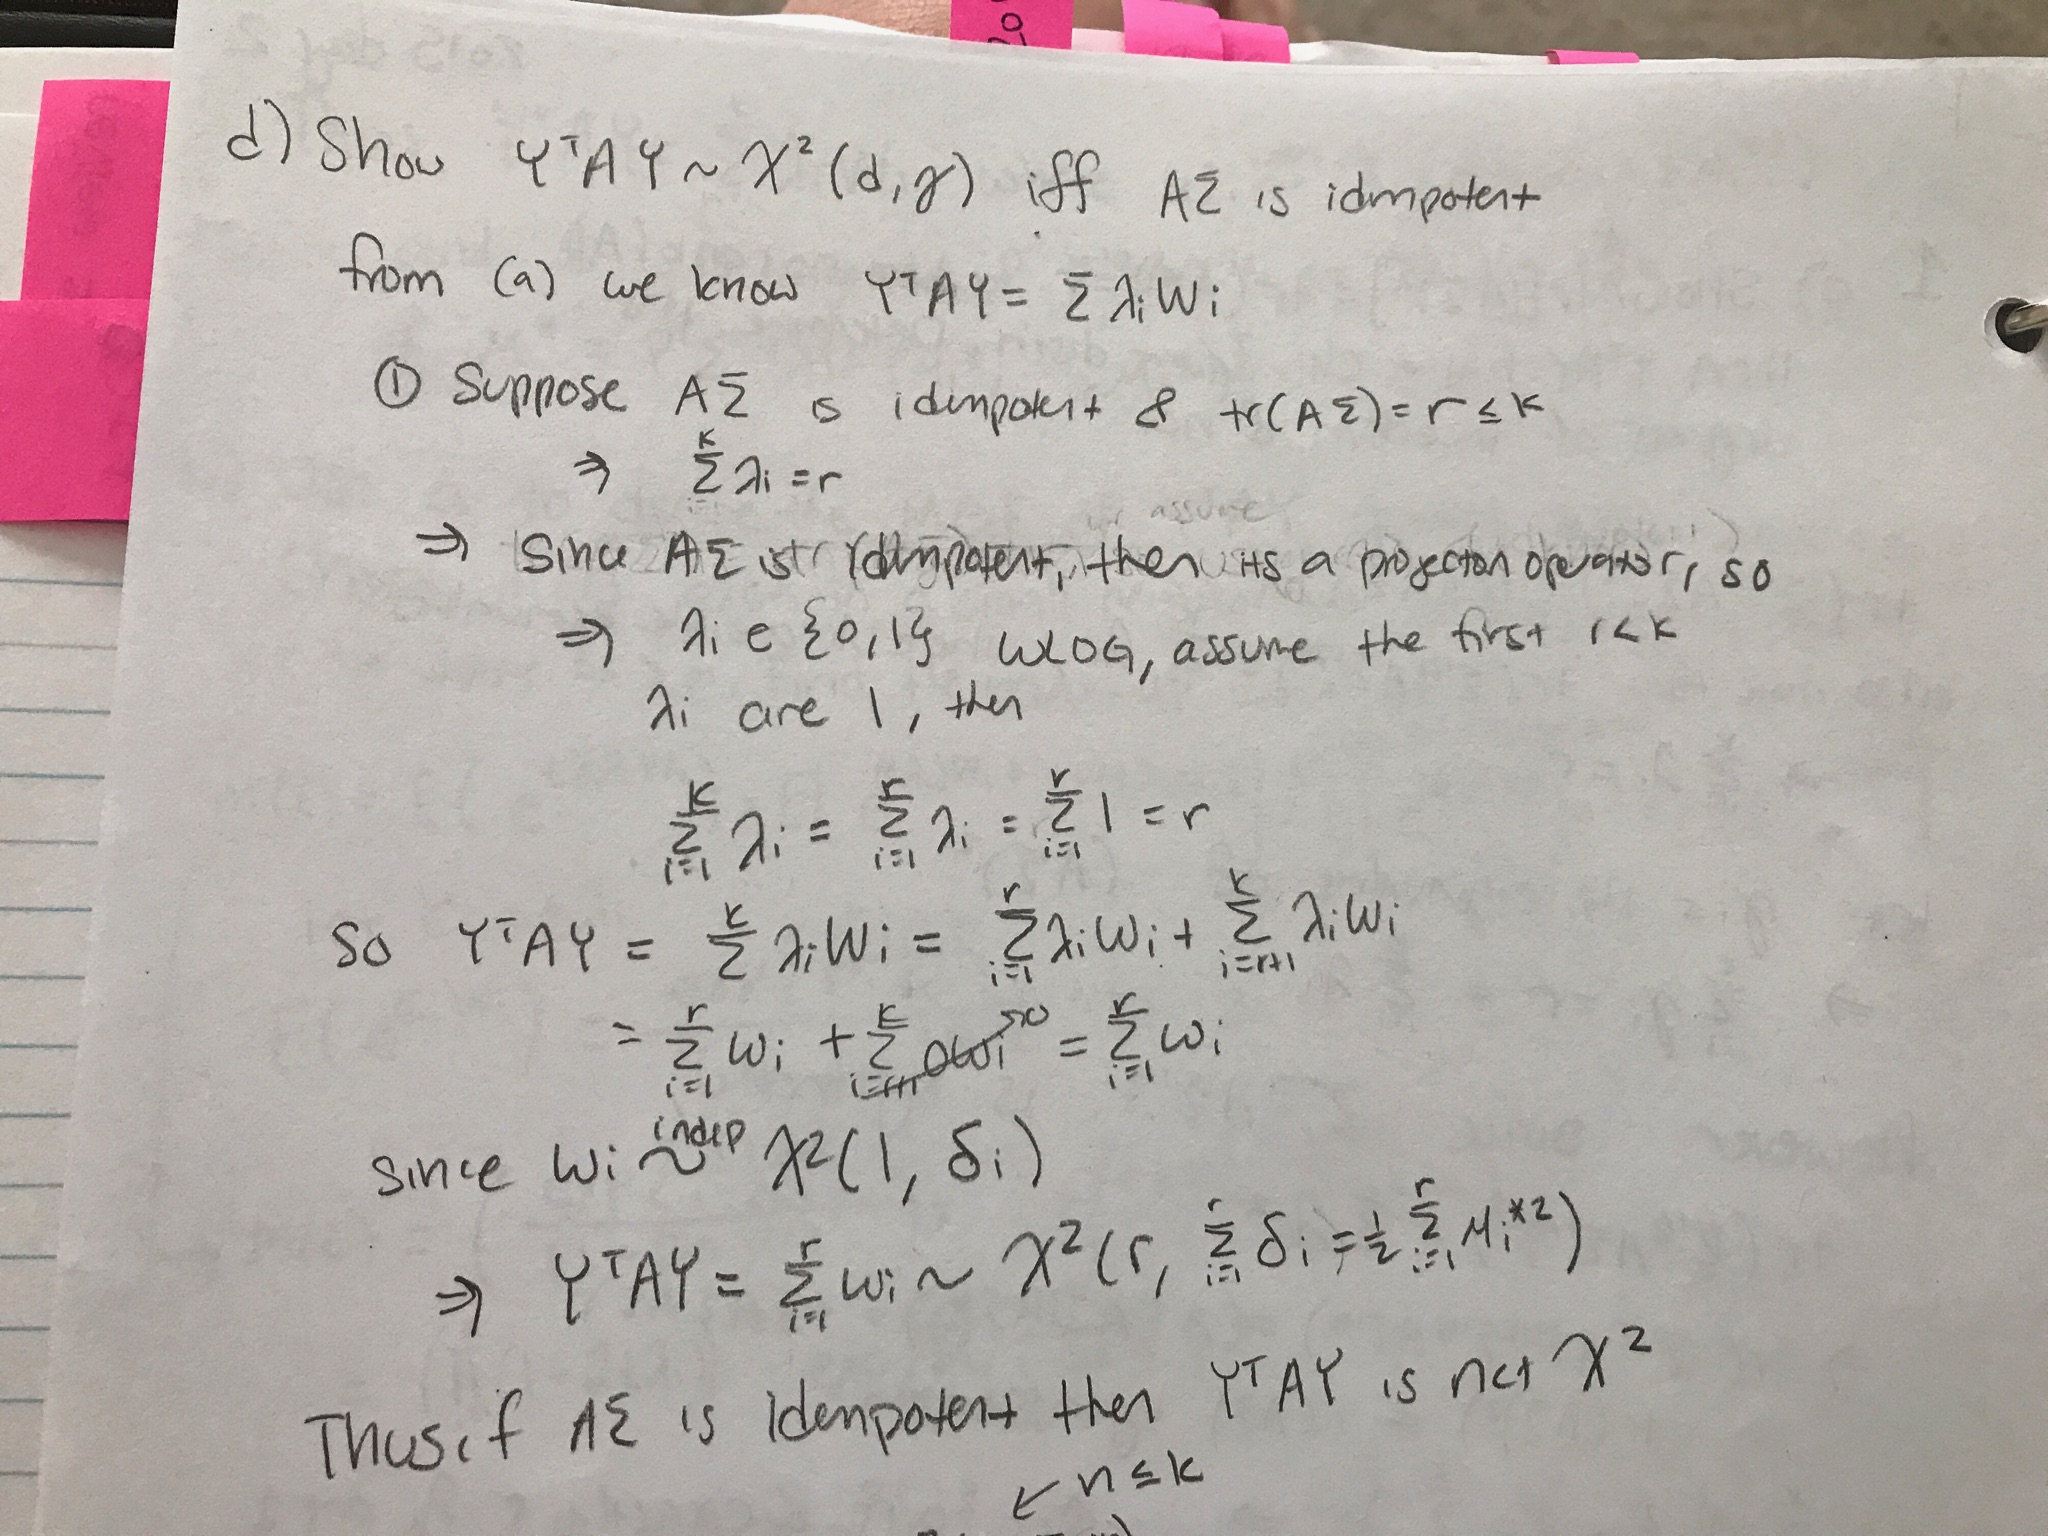 20
d) Show YᵀAY ~ χ²(d, γ) iff AΣ is idempotent
from (a) we know YᵀAY = Σ λᵢWᵢ
① Suppose AΣ is idempotent & tr(AΣ) = r ≤ k
⇒ Σᵢ₌₁ᵏ λᵢ = r
assume
⇒ Since AΣ is idempotent, then its a projection operator, so
⇒ λᵢ ∈ {0,1} WLOG, assume the first r<k
λᵢ are 1, then
Σᵢ₌₁ᵏ λᵢ = Σᵢ₌₁ʳ λᵢ = Σᵢ₌₁ʳ 1 = r
So YᵀAY = Σᵏ λᵢWᵢ = Σᵢ₌₁ʳ λᵢWᵢ + Σᵢ₌ᵣ₊₁ᵏ λᵢWᵢ
= Σᵢ₌₁ʳ Wᵢ + Σᵢ₌ᵣ₊₁ᵏ 0Wᵢ = Σᵢ₌₁ʳ Wᵢ
since Wᵢ ~ indep χ²(1, δᵢ)
⇒ YᵀAY = Σᵢ₌₁ʳ Wᵢ ~ χ²(r, Σᵢ₌₁ʳ δᵢ = ½ Σᵢ₌₁ʳ μᵢ*²)
Thus if AΣ is idempotent then YᵀAY is nct χ²
↙ n ≤ k